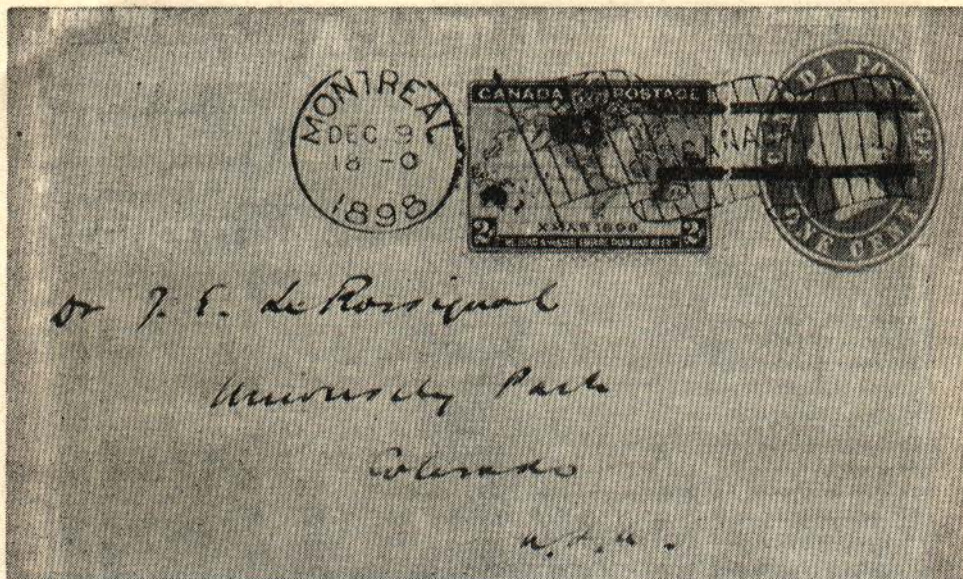 MONTREAL
DEC 9
18-0
1898
CANADA POSTAGE
XMAS 1898
2 WE HOLD A VASTER EMPIRE THAN HAS BEEN 2
CANADA
CANADA POSTAGE
ONE CENT
Dr J. E. LeRossignol
University Park
Colorado
U.S.A.